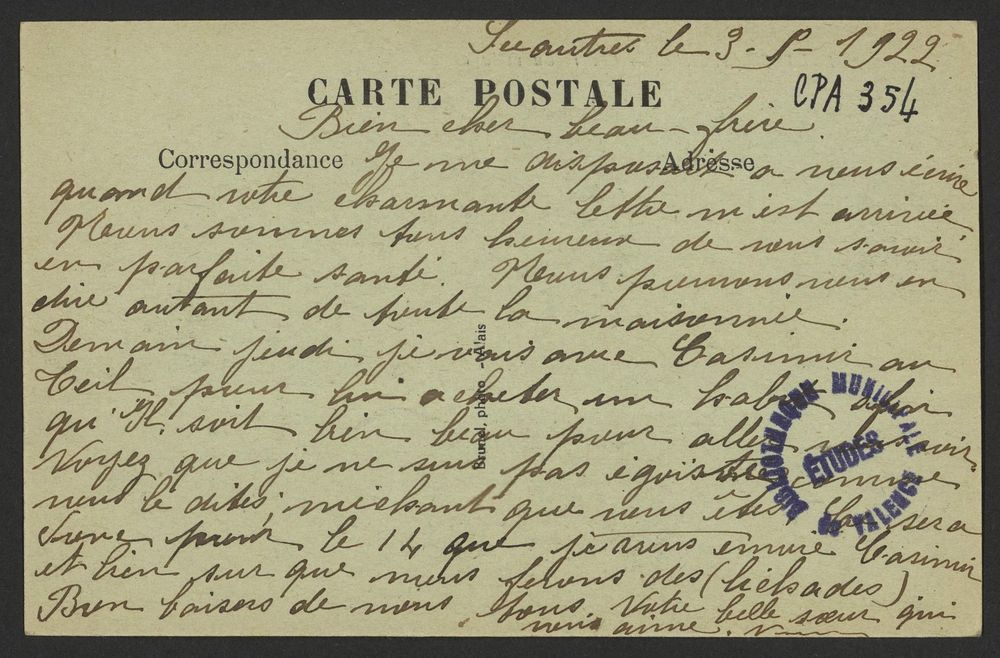 le 3-8-1922
CPA 354
CARTE POSTALE
Bien cher beau-frère.
Correspondance
Adresse
Je me disposais a vous écrire
quand votre charmante lettre m'est arrivée
Nous sommes tous heureux de vous savoir
en parfaite santé. Nous pouvons vous en
dire autant de toute la maisonnée.
Demain jeudi je vais avec Casimir au
Teil pour lui acheter un habit afin
qu'il soit bien beau pour aller vous voir.
Voyez que je ne suis pas égoiste comme
vous le dites, méchant que vous êtes. Ce sera
donc pour le 14 que je vous envoie Casimir
et bien sur que nous ferons des (lichades)
Bon baisers de nous tous. Votre belle sœur qui
vous aime.
Brunel, photo - Alais
BIBLIOTHEQUE MUNICIPALE
ÉTUDES
DE VALENCE